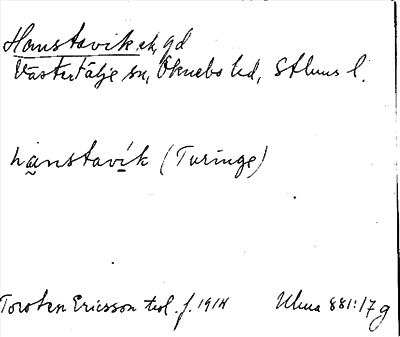 Hanstavik eh, gd
Västertälje sn, Öknebo hd, Sthlms l.
hanstavík (Turinge)
Torsten Ericsson teol. f. 1914 Uluma 881:17g